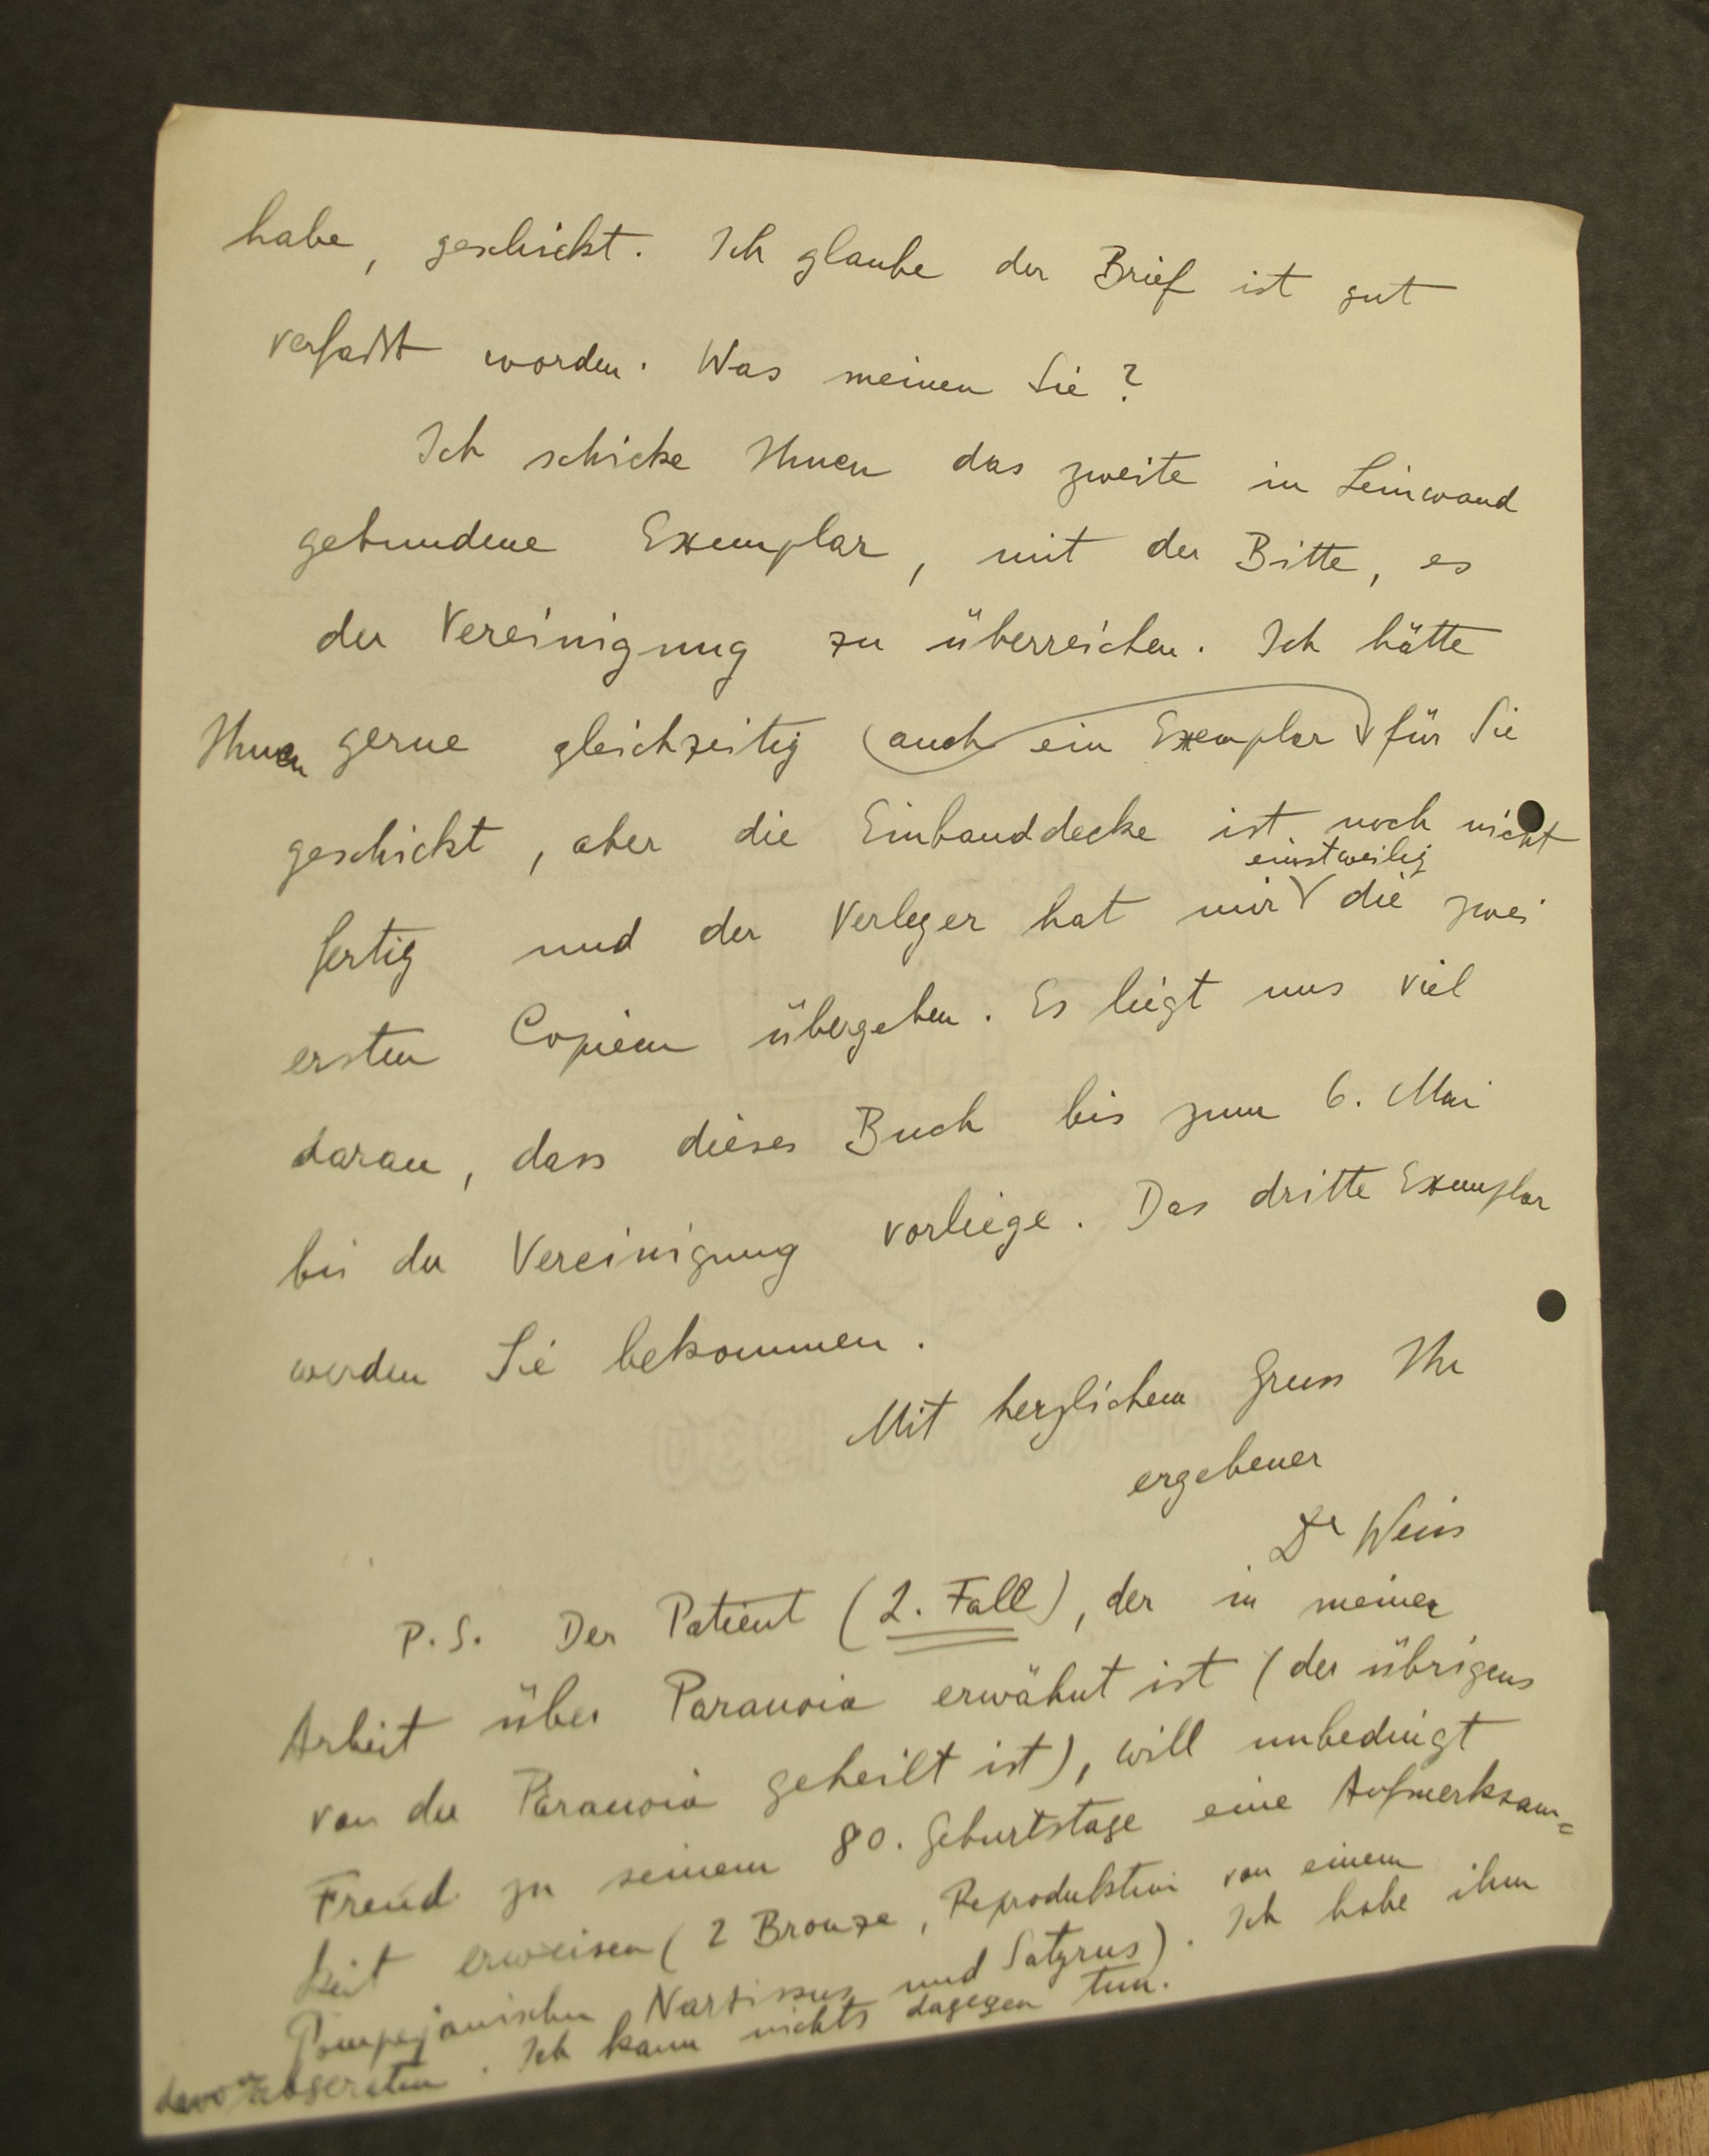 habe, geschickt. Ich glaube der Brief ist gut
verfasst worden. Was meinen Sie?
Ich schicke Ihnen das zweite in Leinwand
gebundene Exemplar, mit der Bitte, es
der Vereinigung zu überreichen. Ich hätte
Ihnen gerne gleichzeitig auch ein Exemplar für Sie
geschickt, aber die Einbanddecke ist noch nicht
einstweilig
fertig und der Verleger hat mir die zwei
ersten Copieen übergeben. Es liegt uns viel
daran, dass dieses Buch bis zum 6. Mai
bei der Vereinigung vorliege. Das dritte Exemplar
werden Sie bekommen.
Mit herzlichem Gruss Ihr
ergebener
Dr Weiss
P.S. Der Patient (2. Fall), der in meiner
Arbeit über Paranoia erwähnt ist (der übrigens
von der Paranoia geheilt ist), will unbedingt
Freud zu seinem 80. Geburtstage eine Aufmerksam=
keit erweisen (2 Bronze, Reproduktion von einem
Pompejanischen Narsissus und Satyrus). Ich habe ihm
davon abgeraten. Ich kann nichts dagegen tun.